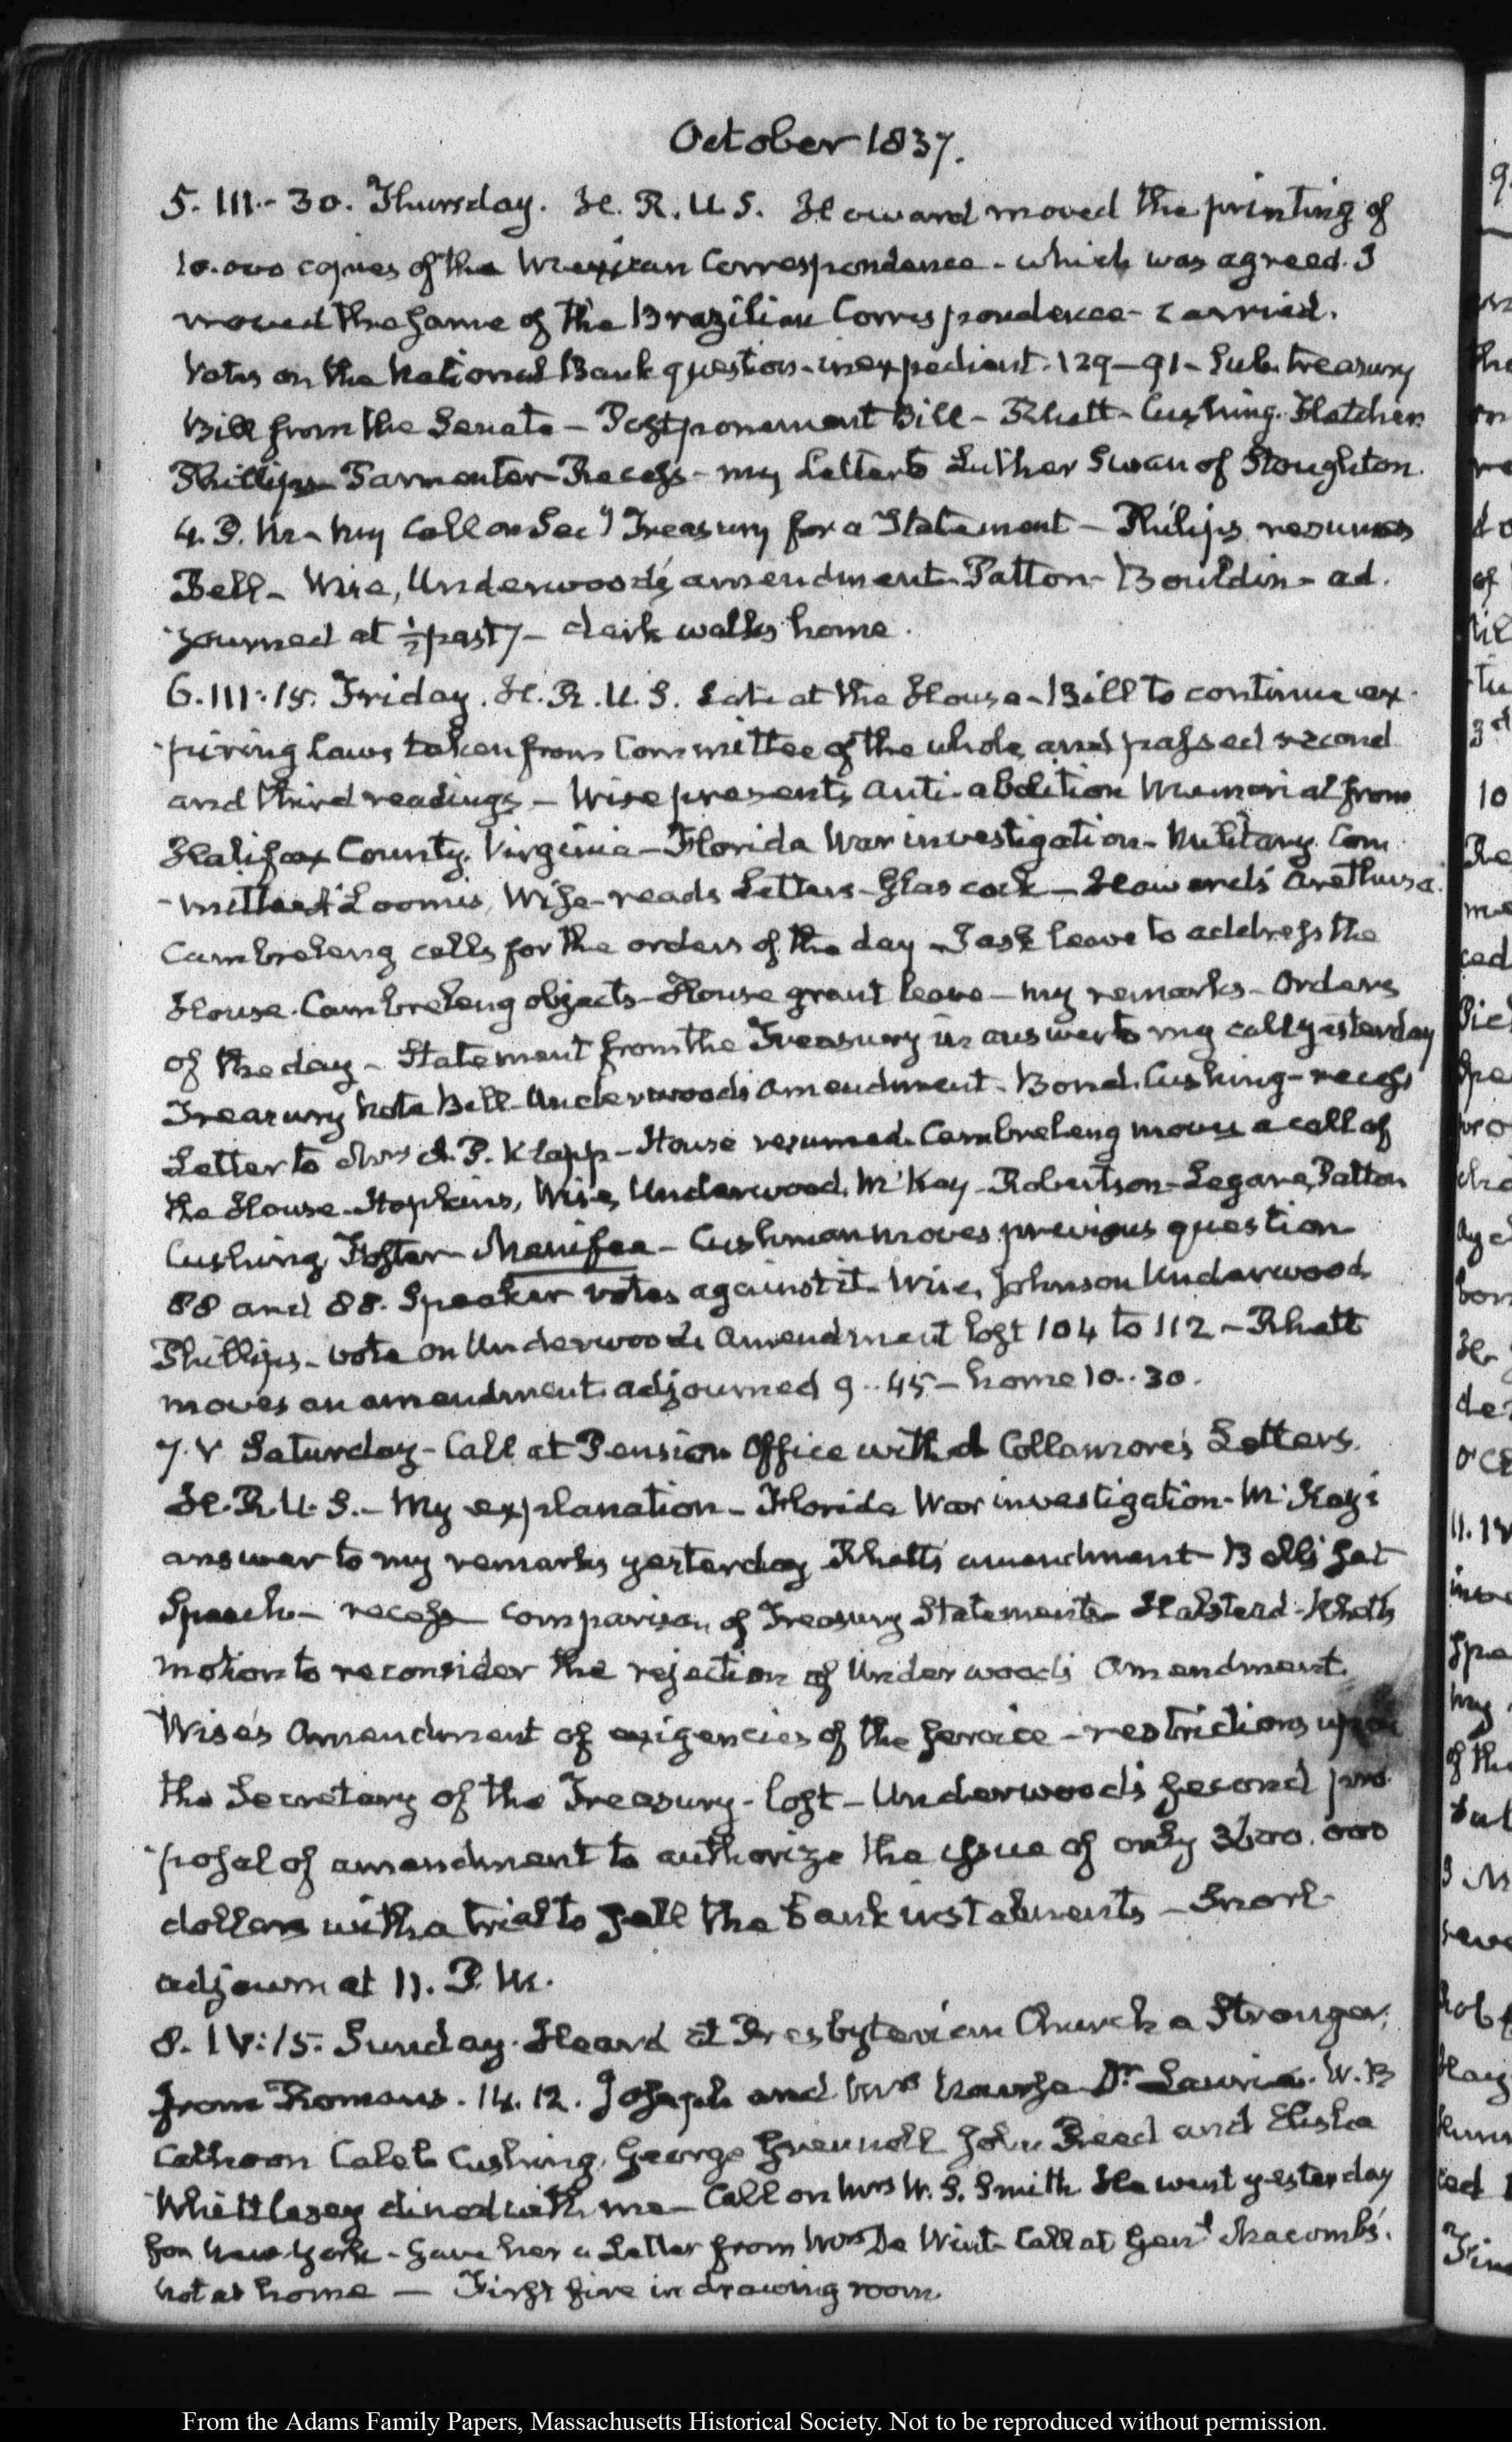 October 1837.
5. III.- 30. Thursday. H. R. U. S. Howard moved the printing of
10.000 copies of the Mexican Correspondence - which was agreed. I
moved the same of the Brazilian Correspondence - carried.
Votes on the National Bank question - inexpedient. 129-91 - Sub. treasury
Bill from the Senate - Postponement Bill - Rhett - Cushing. Fletcher
Phillips - Parmenter - Recess - my Letter to Luther Swan of Stoughton.
4. P. M - my call on Secy Treasury for a Statement - Philips resumes
Bell - Wise, Underwood's amendment - Patton - Bouldin - ad.
journed at ½ past 7 - dark walk home.
6. III:15. Friday. H. R. U. S. Late at the House - Bill to continue ex-
-piring laws taken from Committee of the whole, and passed second
and third readings - Wise presents anti-abolition Memorial from
Halifax County Virginia - Florida War investigation - Military Com
-mittee Loomis, Wise - reads Letters - Glascock - Howard's Arethusa.
Cambreleng calls for the orders of the day - I ask leave to address the
House. Cambreleng objects - House grant leave - my remarks - Orders
of the day - Statement from the Treasury in answer to my call yesterday
Treasury Note Bill - Underwood's Amendment - Bond. Cushing - recess
Letter to Mrs A. P. Klapp - House resumed. Cambreleng moves a call of
the House. Hopkins, Wise, Underwood. McKay - Robertson - Legare, Patton
Cushing, Foster - Menifee - Cushman moves previous question
88 and 88. Speaker votes against it. Wise, Johnson Underwood
Phillips - vote on Underwood's Amendment lost 104 to 112 - Rhett
moves an amendment. adjourned 9..45 - home 10..30.
7. V Saturday - Call at Pension Office with Collamore's Letters.
H. R. U. S. - My explanation - Florida War investigation - McKay's
answer to my remarks yesterday Rhett's amendment - Bell's
Speech - recess comparison of Treasury Statements - Halstead - Rhett's
motion to reconsider the rejection of Underwood's Amendment.
Wise's Amendment of exigencies of the service - restrictions upon
the Secretary of the Treasury - lost - Underwood's second pro-
-posal of amendment to authorize the issue of only 3600.000
dollars with a trial to sell the bank instalments - Snarl -
adjourn at 11. P. M.
8. IV:15. Sunday. Heard at Presbyterian Church a Stranger,
from Romans. 14. 12. Joseph and Mrs Dr Laurie. W. B
Calhoon Caleb Cushing, George Grennell John Reed and Elisha
Whittlesey dined with me - Call on Mrs W. S. Smith. He went yesterday
for New York - gave her a Letter from Mrs De Wint - Call at Genl Macomb's.
not at home - First fire in drawing room.
From the Adams Family Papers, Massachusetts Historical Society. Not to be reproduced without permission.